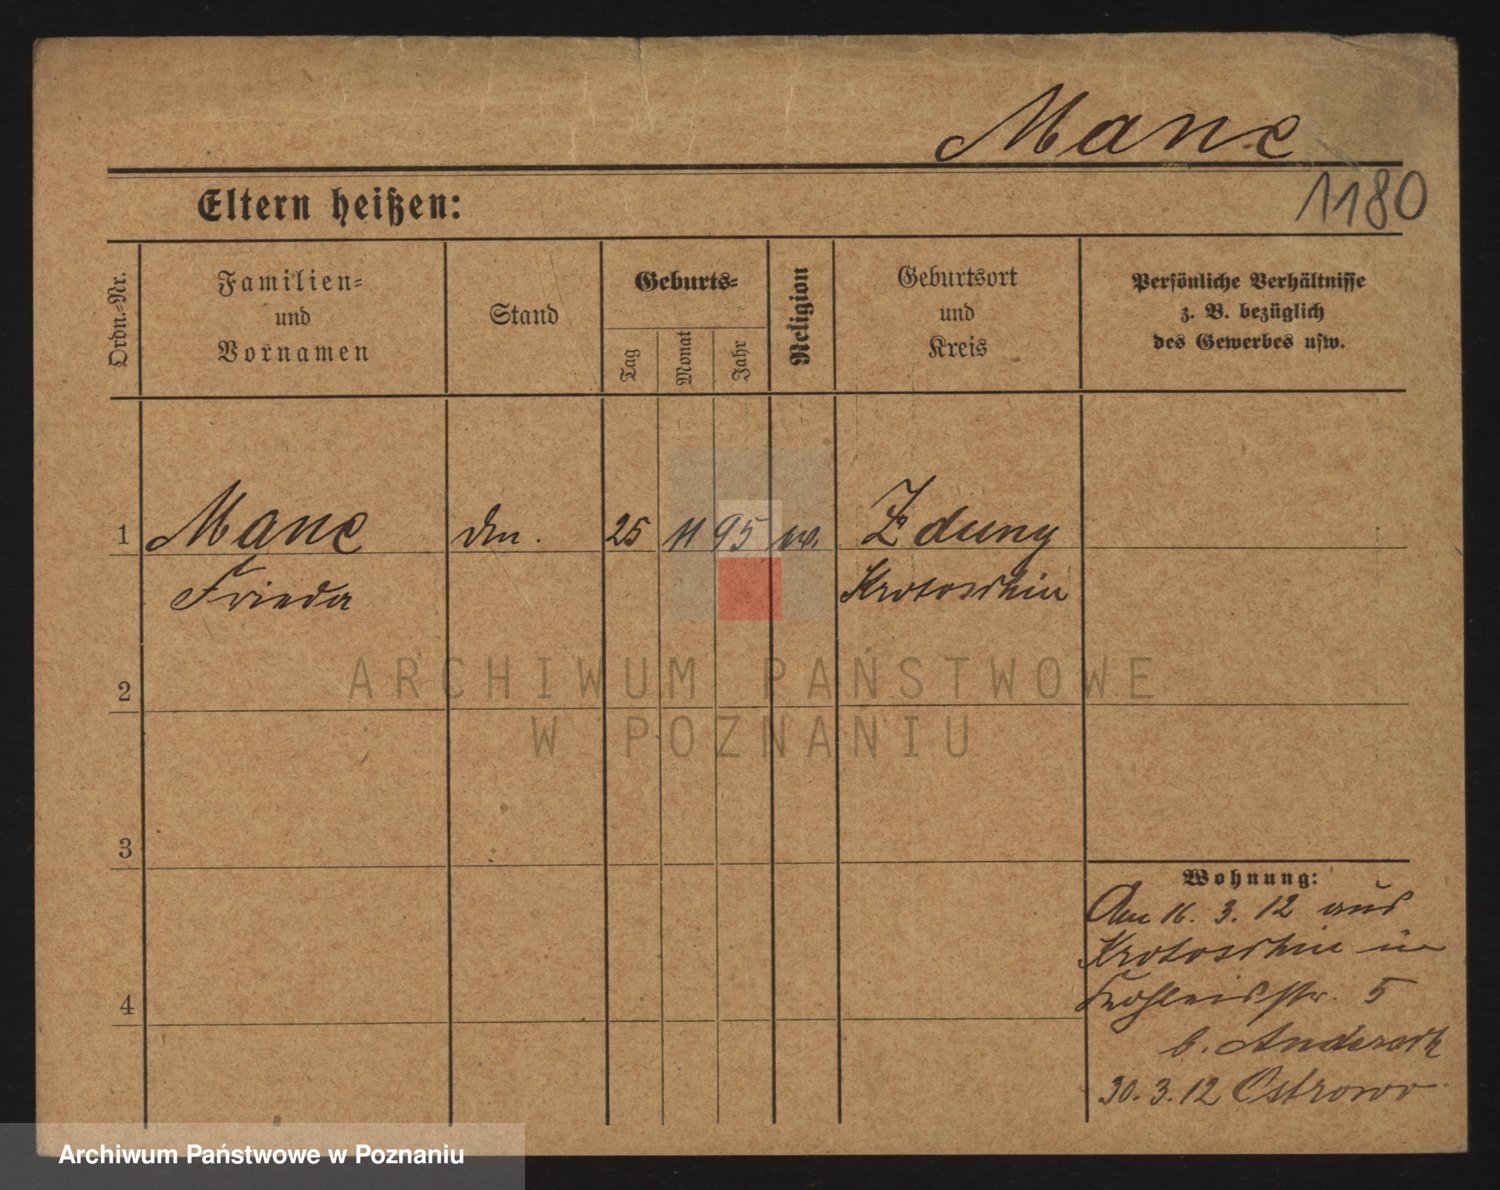 Manc
1180
Eltern heißen:
Ordn.-Nr.
Familien-
und
Vornamen
Stand
Geburts-
Tag
Monat
Jahr
Religion
Geburtsort
und
Kreis
Persönliche Verhältnisse
z. B. bezüglich
des Gewerbes usw.
1 Manc 25 11 95 Zduny
Frieda Krotoschin
2
3
4
Wohnung:
Am 16. 3. 12 aus
Krotoschin in
5
b. Anderseck
30. 3. 12 Ostrowo
ARCHIWUM PAŃSTWOWE
W POZNANIU
Archiwum Państwowe w Poznaniu